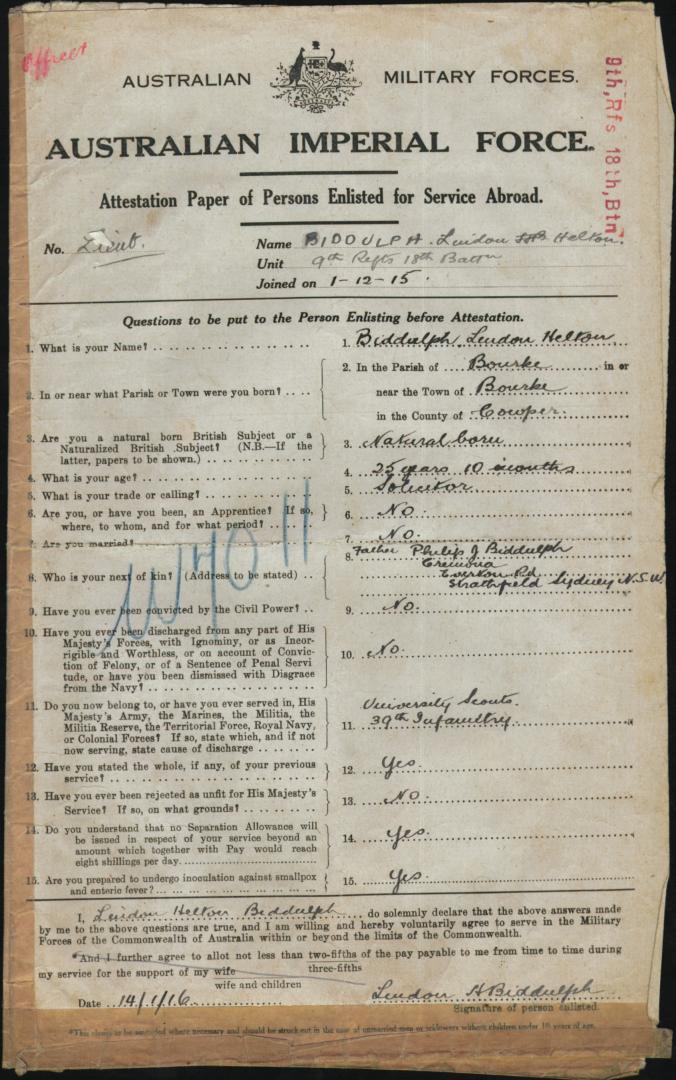 Offrect
9th, Rfs 18th, Btn
AUSTRALIAN MILITARY FORCES.
AUSTRALIAN IMPERIAL FORCE.
Attestation Paper of Persons Enlisted for Service Abroad.
No. Lieut. Name BIDDULPH. Lindon Helton.
Unit 9th Refts 18th Battn
Joined on 1-12-15.
Questions to be put to the Person Enlisting before Attestation.
1. What is your Name? 1. Biddulph Lindon Helton
2. In or near what Parish or Town were you born? 2. In the Parish of Bourke in or
near the Town of Bourke
in the County of Cowper.
3. Are you a natural born British Subject or a
Naturalized British Subject? (N.B.—If the
latter, papers to be shown.) 3. Natural born
4. What is your age? 4. 25 years 10 months
5. What is your trade or calling? 5. Solicitor
6. Are you, or have you been, an Apprentice? If so,
where, to whom, and for what period? 6. No.
7. Are you married? 7. No.
8. Who is your next of kin? (Address to be stated) 8. Father Philip J Biddulph
Cremona
Everton Rd
Strathfield Sydney N.S.W.
9. Have you ever been convicted by the Civil Power? 9. No.
10. Have you ever been discharged from any part of His
Majesty's Forces, with Ignominy, or as Incor-
rigible and Worthless, or on account of Convic-
tion of Felony, or of a Sentence of Penal Servi
tude, or have you been dismissed with Disgrace
from the Navy? 10. No.
11. Do you now belong to, or have you ever served in, His
Majesty's Army, the Marines, the Militia, the
Militia Reserve, the Territorial Force, Royal Navy,
or Colonial Forces? If so, state which, and if not
now serving, state cause of discharge 11. University Scouts.
39th Infantry.
12. Have you stated the whole, if any, of your previous
service? 12. Yes.
13. Have you ever been rejected as unfit for His Majesty's
Service? If so, on what grounds? 13. No.
14. Do you understand that no Separation Allowance will
be issued in respect of your service beyond an
amount which together with Pay would reach
eight shillings per day. 14. Yes.
15. Are you prepared to undergo inoculation against smallpox
and enteric fever? 15. Yes.
I, Lindon Helton Biddulph do solemnly declare that the above answers made
by me to the above questions are true, and I am willing and hereby voluntarily agree to serve in the Military
Forces of the Commonwealth of Australia within or beyond the limits of the Commonwealth.
*And I further agree to allot not less than two-fifths of the pay payable to me from time to time during
three-fifths
my service for the support of my wife
wife and children
Date 14/1/16 Lindon H Biddulph
Signature of person enlisted.
*This clause to be amended where necessary and should be struck out in the case of unmarried men or widowers without children under 18 years of age.